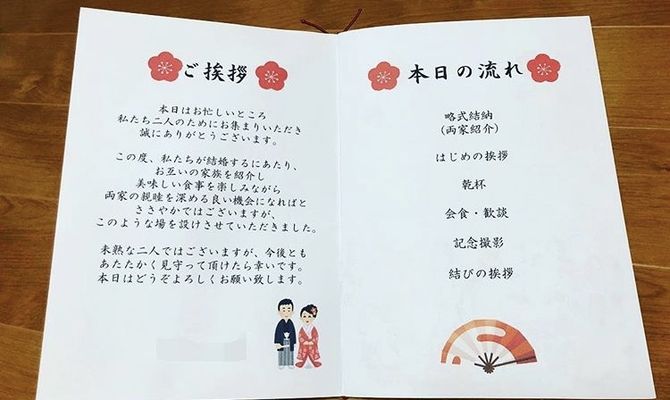 ご挨拶
本日はお忙しいところ
私たち二人のためにお集まりいただき
誠にありがとうございます。
この度、私たちが結婚するにあたり、
お互いの家族を紹介し
美味しい食事を楽しみながら
両家の親睦を深める良い機会になればと
ささやかではございますが、
このような場を設けさせていただきました。
未熟な二人ではございますが、今後とも
あたたかく見守って頂けたら幸いです。
本日はどうぞよろしくお願い致します。
本日の流れ
略式結納
(両家紹介)
はじめの挨拶
乾杯
会食・歓談
記念撮影
結びの挨拶